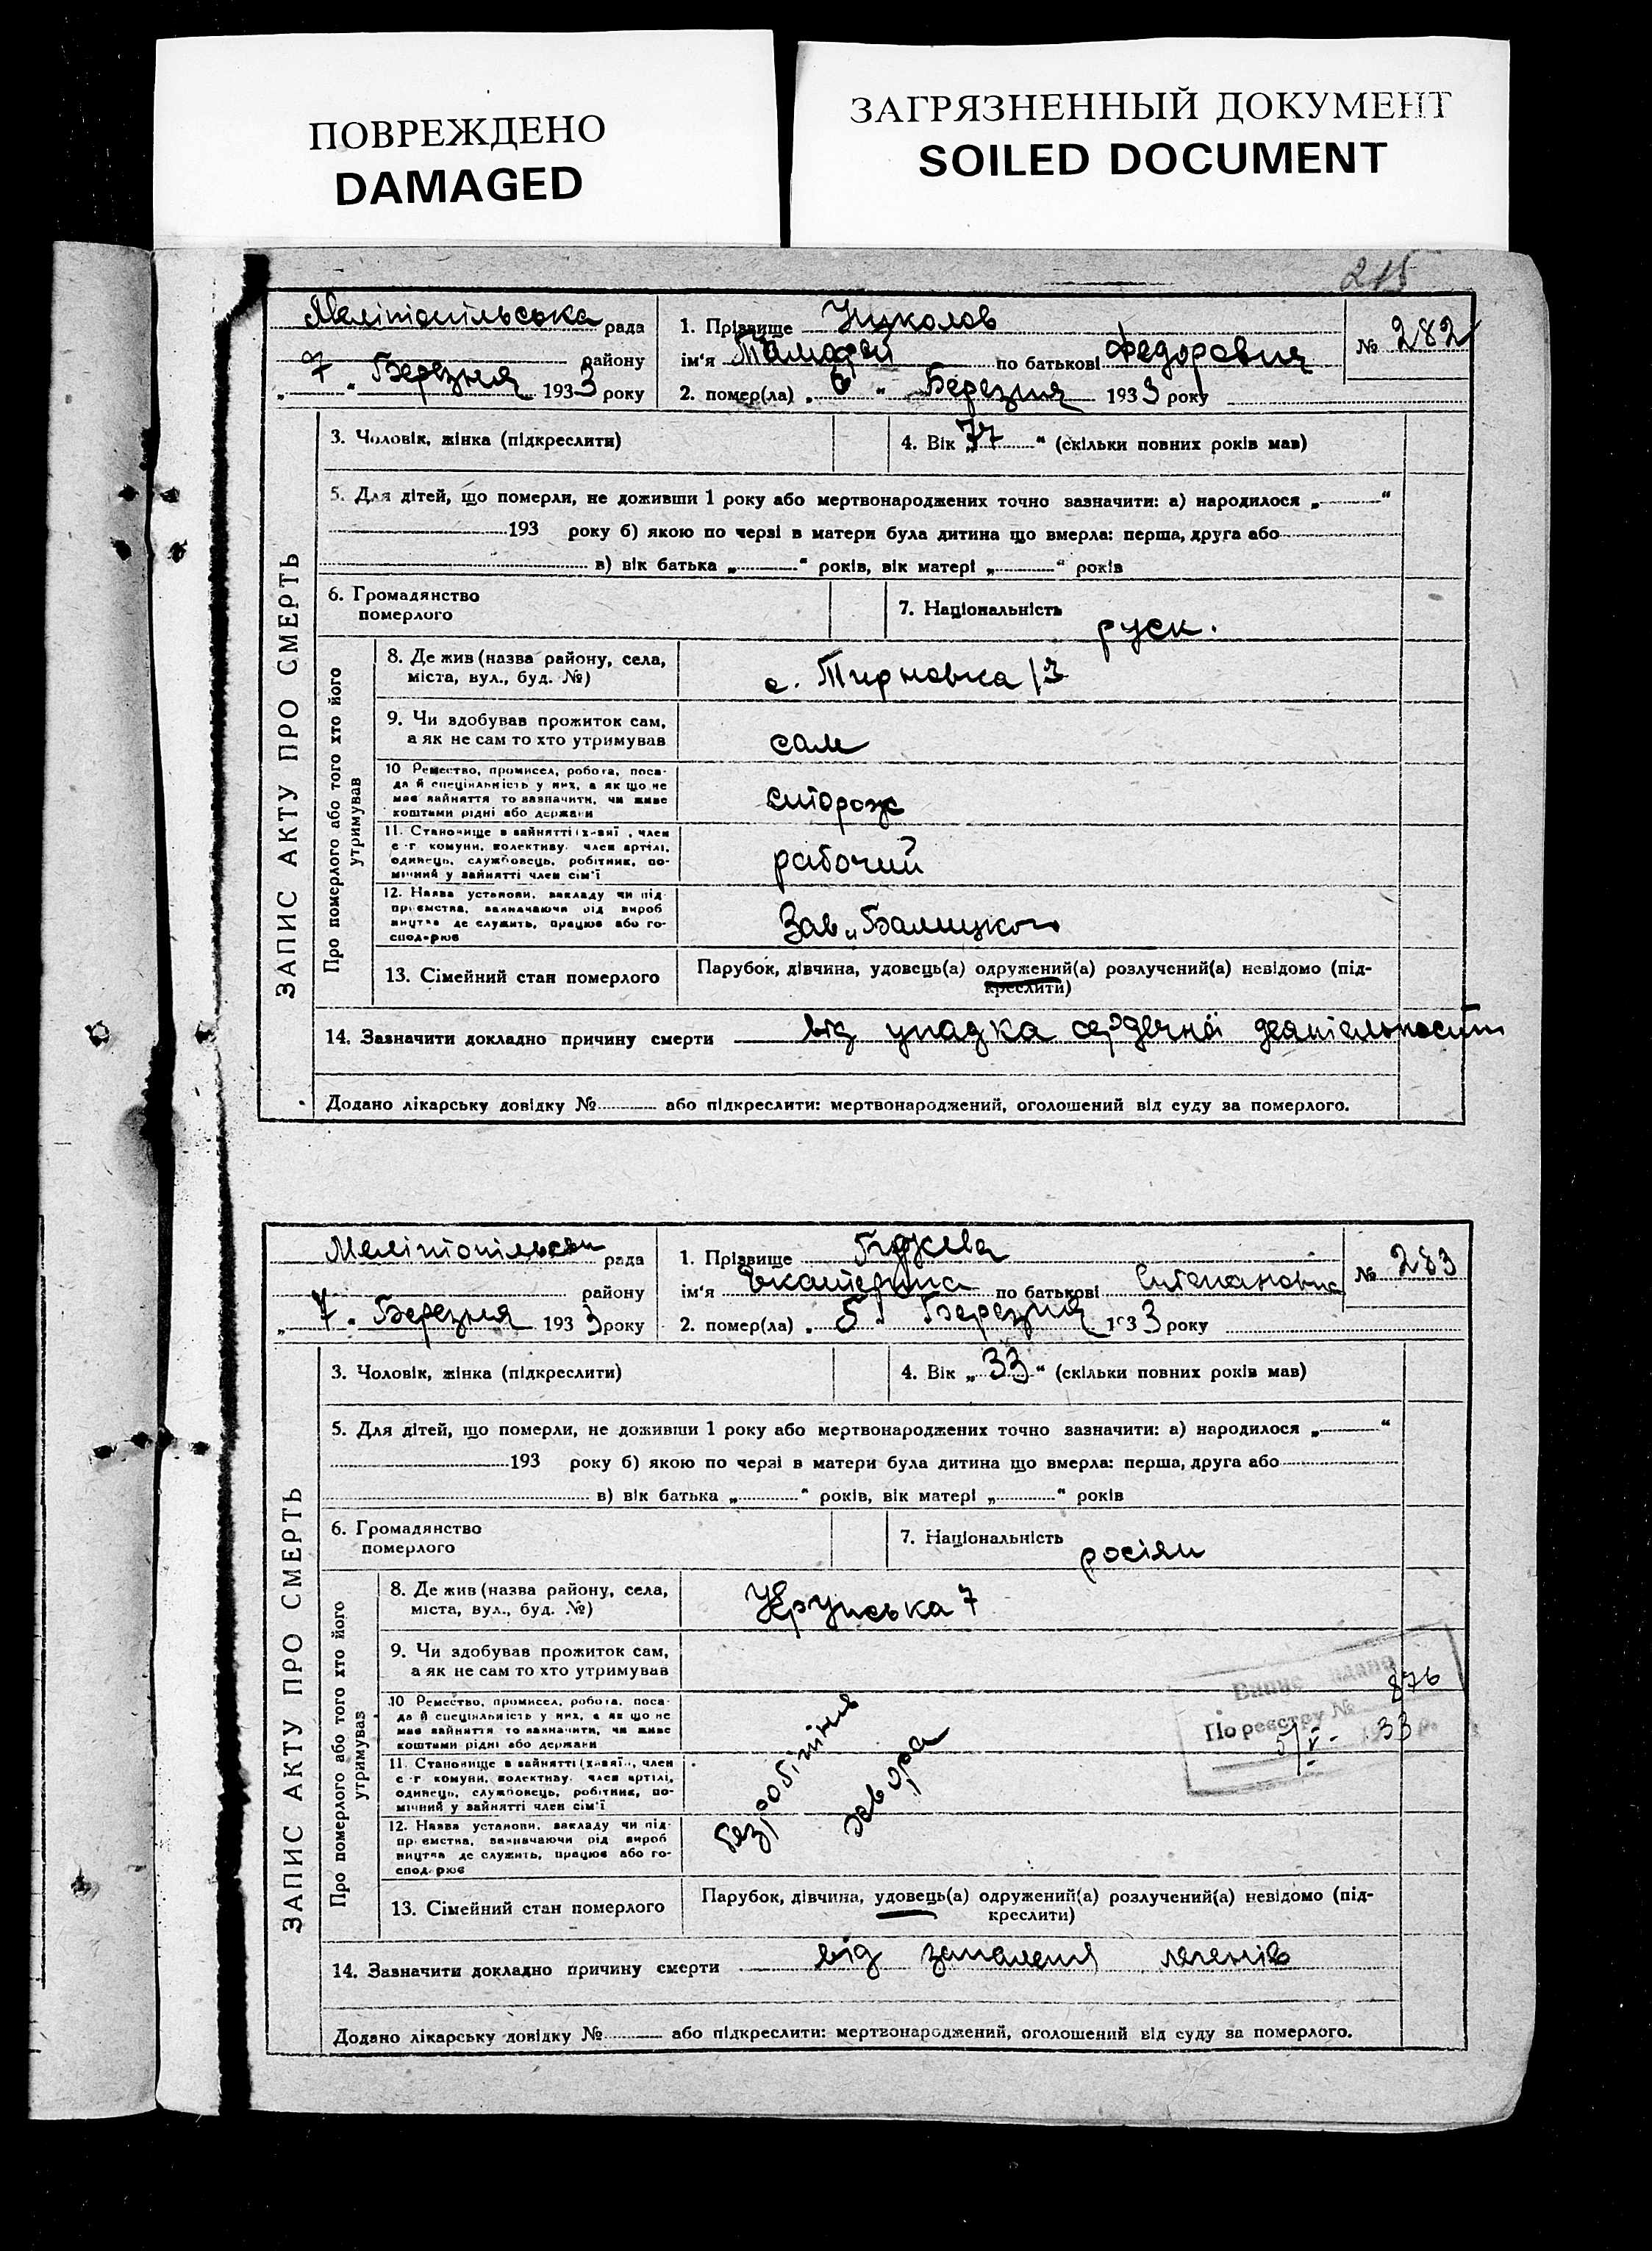 ПОВРЕЖДЕНО
DAMAGED
ЗАГРЯЗНЕННЫЙ ДОКУМЕНТ
SOILED DOCUMENT
215
Мелітопільська рада
району
„ 7 " Березня 1933 року
1. Прізвище Николов
ім'я по батькові Федоровия
2. помер(ла) „ 6 " Березня 1933 року
№ 282
ЗАПИС АКТУ ПРО СМЕРТЬ
3. Чоловік, жінка (підкреслити)
4. Вік „77" (скільки повних років мав)
5. Для дітей, що померли, не доживши 1 року або мертвонароджених точно зазначити: а) народилося „ "
193 року б) якою по черзі в матери була дитина що вмерла: перша, друга або
в) вік батька „ " років, вік матері „ " років
6. Громадянство
померлого
7. Національність руск.
Про померлого або того хто його
утримував
8. Де жив (назва району, села,
міста, вул., буд. №)
с. Тирновка 13
9. Чи здобував прожиток сам,
а як не сам то хто утримував
сам
10 Ремество, промисел, робота, поса-
да й спеціяльність у них, а як що не
має зайняття то зазначити, чи живе
коштами рідні або держави
сторож
11. Становище в зайнятті (хазяї, член
с-г комуни, колективу, член артілі,
одинець, службовець, робітник, по-
мічний у зайнятті член сім'ї
рабочий
12. Назва установи, закладу чи під-
приємства, зазначаючи рід вироб
ництва де служить, працює або го-
сподарює
Зав. „Балицкого
13. Сімейний стан померлого
Парубок, дівчина, удовець(а) одружений(а) розлучений(а) невідомо (під-
креслити)
14. Зазначити докладно причину смерти від упадка сердечної деятельности
Додано лікарську довідку № або підкреслити: мертвонароджений, оголошений від суду за померлого.
Мелітопільськ рада
району
„ 7 " Березня 1933 року
1. Прізвище
ім'я Екатерина по батькові Степановна
2. помер(ла) „ 5 " Березня 1933 року
№ 283
ЗАПИС АКТУ ПРО СМЕРТЬ
3. Чоловік, жінка (підкреслити)
4. Вік „ 33 " (скільки повних років мав)
5. Для дітей, що померли, не доживши 1 року або мертвонароджених точно зазначити: а) народилося „ "
193 року б) якою по черзі в матери була дитина що вмерла: перша, друга або
в) вік батька „ " років, вік матері „ " років
6. Громадянство
померлого
7. Національність росіян
Про померлого або того хто його
утримував
8. Де жив (назва району, села,
міста, вул., буд. №)
Крупська 7
9. Чи здобував прожиток сам,
а як не сам то хто утримував
10 Ремество, промисел, робота, поса-
да й спеціяльність у них, а як що не
має зайняття то зазначити, чи живе
коштами рідні або держави
11. Становище в зайнятті (хазяї, член
с-г комуни, колективу, член артілі,
одинець, службовець, робітник, по-
мічний у зайнятті член сім'ї
12. Назва установи, закладу чи під-
приємства, зазначаючи рід вироб
ництва де служить, працює або го-
сподарює
безробітня
хвора
876
По реєстру №
5/V- 33 р.
13. Сімейний стан померлого
Парубок, дівчина, удовець(а) одружений(а) розлучений(а) невідомо (під-
креслити)
14. Зазначити докладно причину смерти від запалення легенів
Додано лікарську довідку № або підкреслити: мертвонароджений, оголошений від суду за померлого.